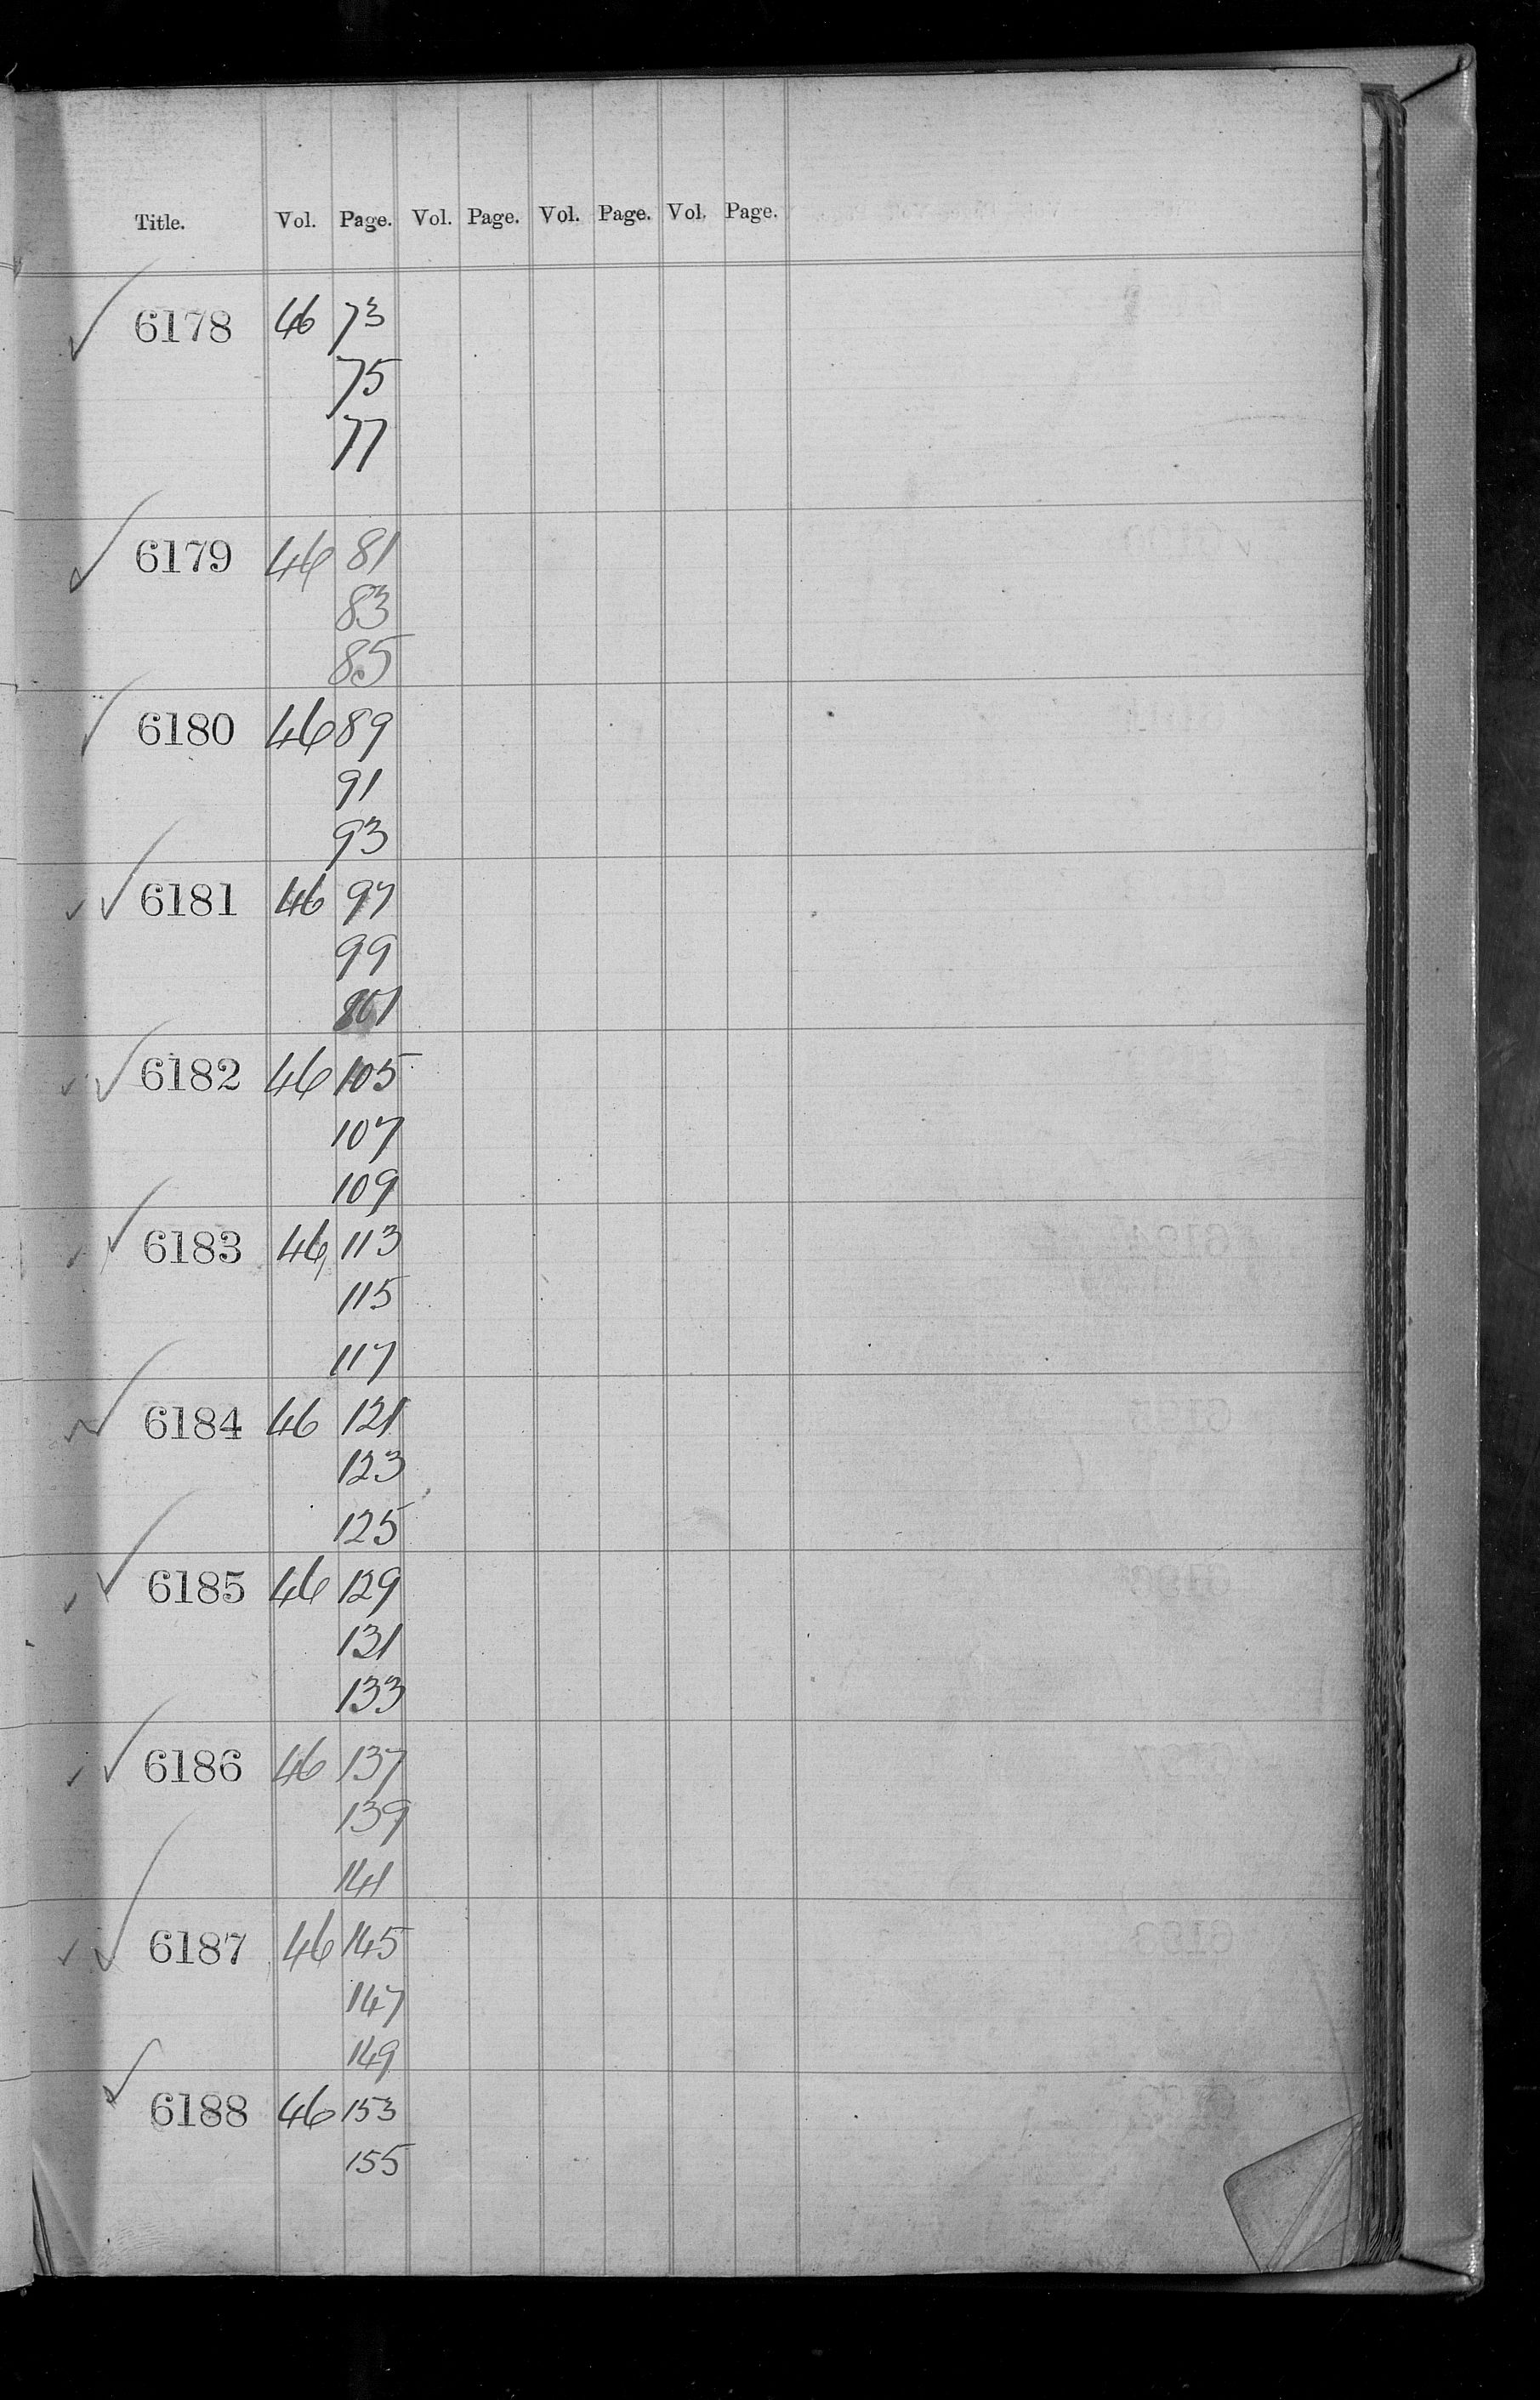 Title. Vol. Page. Vol. Page. Vol. Page. Vol. Page.
6178 46 73
75
77
6179 46 81
83
85
6180 46 89
91
93
6181 46 97
99
101
6182 46 105
107
109
6183 46 113
115
117
6184 46 121
123
125
6185 46 129
131
133
6186 46 137
139
141
6187 46 145
147
149
6188 46 153
155